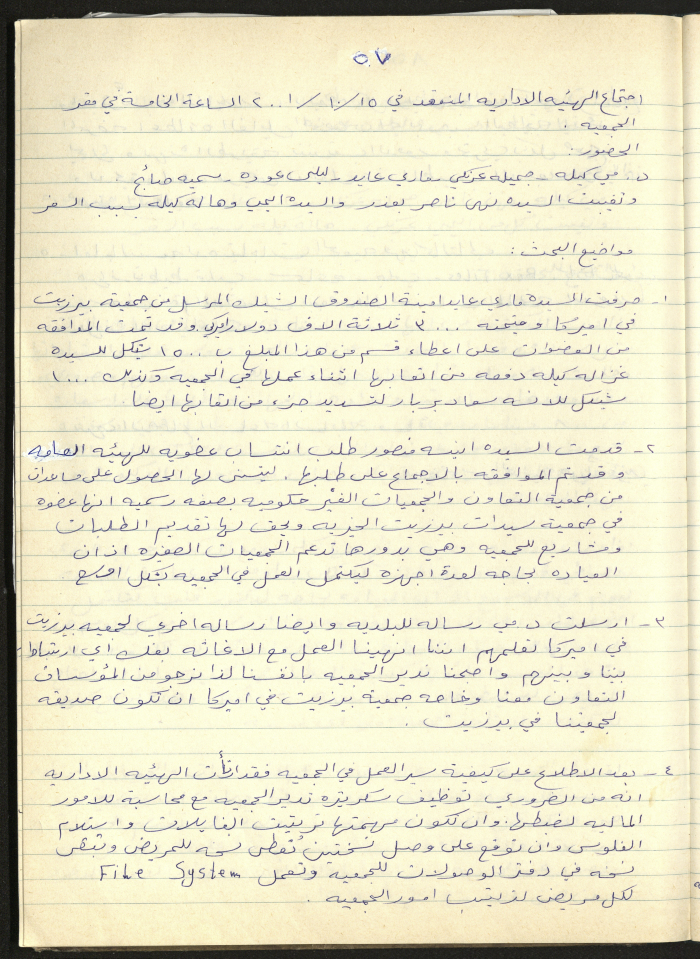 ٥٧
اجتماع الهيئه الاداريه المنعقد في ١٥/١٠/٢٠٠١ الساعة الخامسة في مقر
الجمعيه .
الحضور :
د. مي كيله - جميله عزكي - ماري عايد - ليلى عوده - سميه صائج
وتغيبت السيده نهى ناصر بعذر والسيده اليمي وهاله كيله بسبب السفر
مواضيع البحث :
١- صرفت السيده ماري عايد امينة الصندوق الشيك المرسل من جمعيه بيرزيت
في اميركا وقيمته ٣٠٠٠ ثلاثة الاف دولار اميركي وقد تمت الموافقه
من العضوات على اعطاء قسم من هذا المبلغ ب ١٥٠٠ شيكل للسيده
غزاله كيله دفعه من اتعابها اثناء عملها في الجمعيه وكذلك ١٠٠٠
شيكل للانسه سعاد بربار لتسديد جزء من اتعابها ايضا .
٢- قدمت السيده ابنسه منصور طلب انتساب عضويه للهيئه العامه
وقد تم الموافقه بالاجماع على طلبها . ليتسنى لها الحصول على مساعدات
من جمعية التعاون والجمعيات الغير حكوميه بصفه رسميه انها عضوه
في جمعية سيدات بيرزيت الخيريه ويحق لها تقديم الطلبات
ومشاريع للجمعيه وهي بدورها تدعم الجمعيات الصغيره اذ ان
العياده بحاجه لعدة اجهزه ليكتمل العمل في الجمعيه بشكل اوسع
٣- ارسلت د. مي رساله للبلديه وايضا رساله اخرى لجمعيه بيرزيت
في اميركا تعلمهم اننا انهينا العمل مع الاغاثه بفك اي ارتباط
بيننا وبينهم واصبحنا ندير الجمعيه بانفسنا لذا نرجو من المؤسسات
التعاون معنا وخاصه جمعية بيرزيت في اميركا ان تكون صديقه
لجمعيتنا في بيرزيت .
٤- بعد الاطلاع على كيفية سير العمل في الجمعيه فقد ارتأت الهيئه الاداريه
انه من الضروري توظيف سكرتيره تدير الجمعيه مع محاسبة للامور
الماليه لضبطها وان تكون مهمتها ترتيب الفايلات واستلام
الفلوس وان توقع على وصل نسختين تعطى نسخه للمريض وتبقى
نسخه في دفتر الوصولات للجمعية وتعمل File System
لكل مريض لترتيب امور الجمعيه .